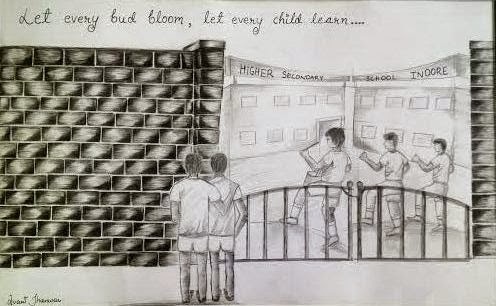 Let every bud bloom, let every child learn....
HIGHER SECONDARY SCHOOL INDORE